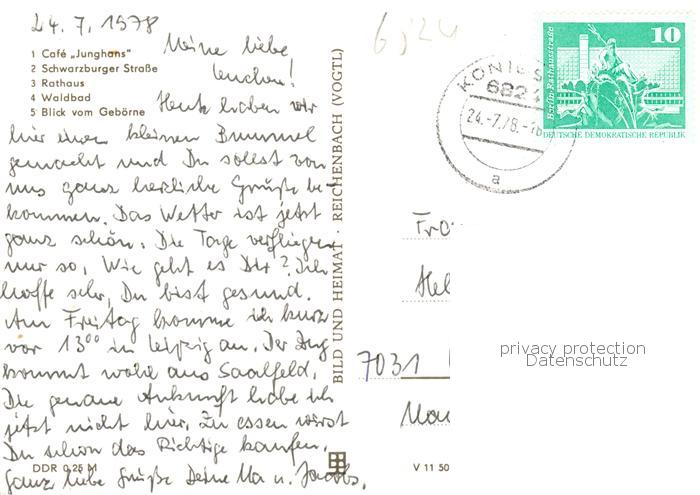 24.7.1978
1 Café „Junghans"
2 Schwarzburger Straße
3 Rathaus
4 Waldbad
5 Blick vom Gebörne
Meine liebe
Heute haben wir
hier einen kleinen Bummel
gemacht und Du sollst von
uns ganz herzliche Grüße be-
kommen. Das Wetter ist jetzt
ganz schön. Die Tage verfliegen
nur so. Wie geht es Dir? Ich
hoffe sehr, Du bist gesund.
Am Freitag komme ich kurz
vor 13⁰⁰ in Leipzig an. Der Zug
kommt wohl aus Saalfeld.
Die genaue Ankunft habe ich
jetzt nicht hier. Zu essen wirst
Du schon das Richtige kaufen.
Ganz liebe Grüße Deine Ma u. Jacobs.
DDR 0,25 M
BILD UND HEIMAT · REICHENBACH (VOGTL)
KÖNIGS
682
24.-7.78.-16
a
10
Berlin, Rathausstraße
DEUTSCHE DEMOKRATISCHE REPUBLIK
Fra
Hel
7031
V 11 50
privacy protection
Datenschutz